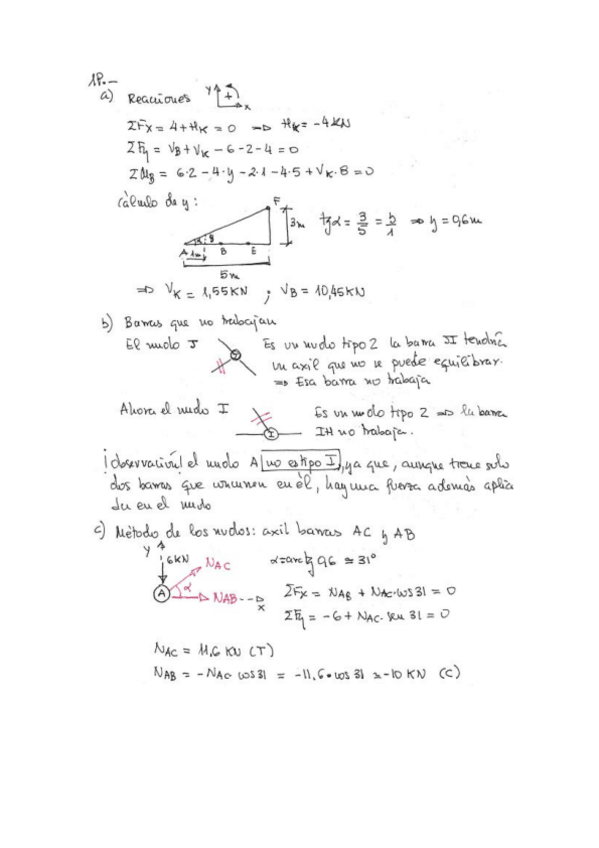 1P.-
a) Reacciones y + x
ΣFx = 4 + HK = 0 => HK = -4KN
ΣFy = VB + VK - 6 - 2 - 4 = 0
ΣMB = 6·2 - 4·y - 2·1 - 4·5 + VK·8 = 0
Cálculo de y:
F
3m
tgα = 3/5 = b/1 => y = 0,6m
α y
A 1m B E
5m
=> VK = 1,55KN ; VB = 10,45KN
b) Barras que no trabajan
El nudo J J Es un nudo tipo 2 la barra JI tendría
un axil que no se puede equilibrar.
=> Esa barra no trabaja
Ahora el nudo I Es un nudo tipo 2 => la barra
I IH no trabaja.
¡observación! el nudo A no es tipo I, ya que, aunque tiene solo
dos barras que concurren en él, hay una fuerza además aplica
da en el nudo
c) Método de los nudos: axil barras AC y AB
y 6KN NAC α=arctg 0,6 ≃ 31°
A α NAB x ΣFx = NAB + NAC·cos31 = 0
ΣFy = -6 + NAC·sen 31 = 0
NAC = 11,6 KN (T)
NAB = -NAC cos31 = -11,6·cos 31 ≃ -10 KN (C)